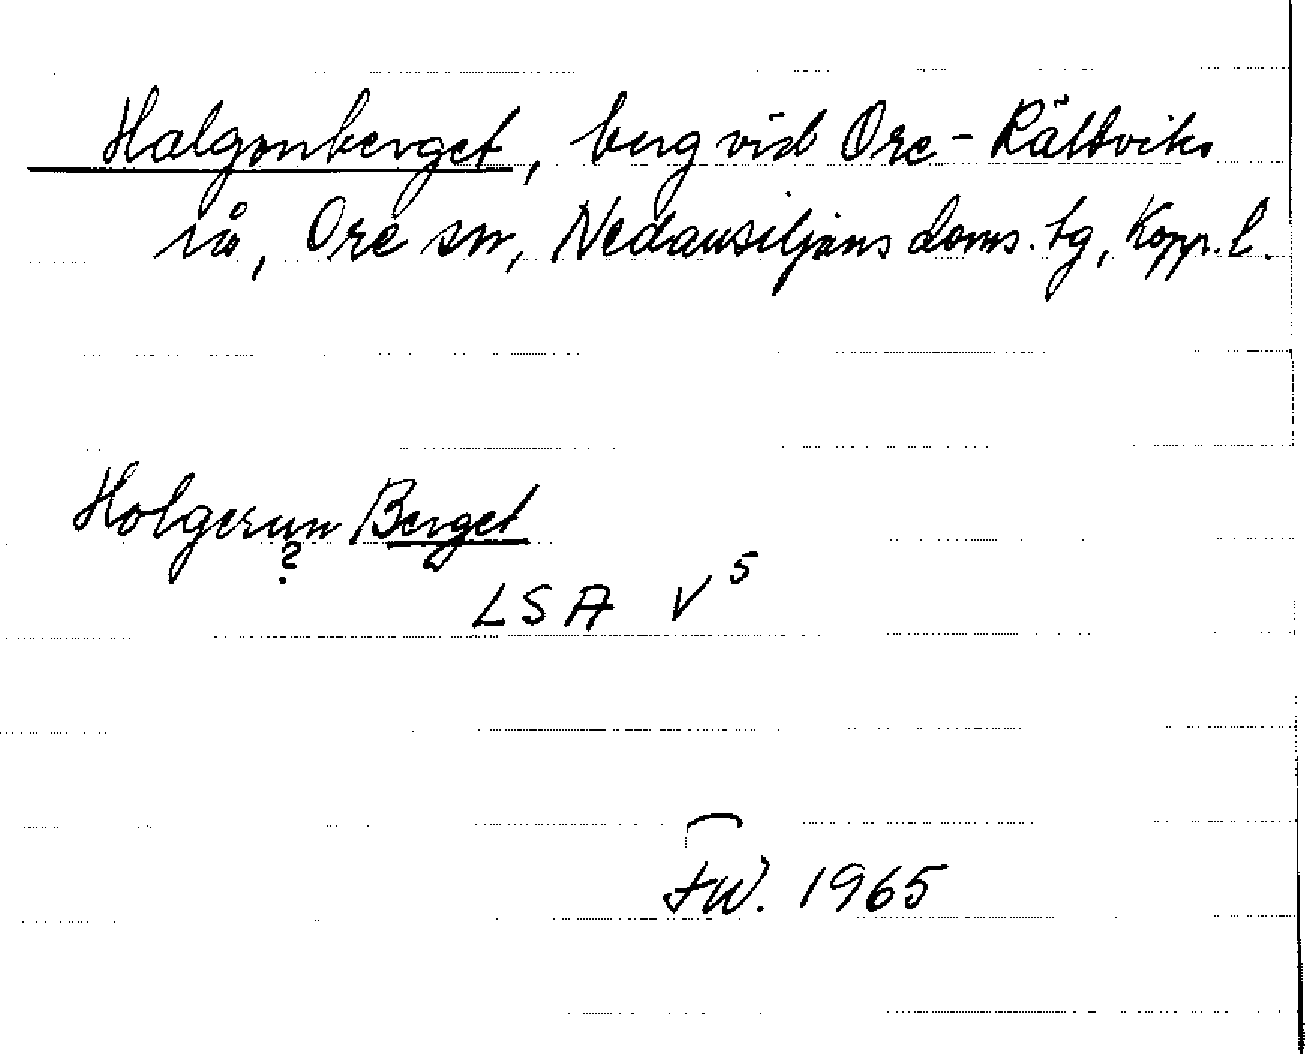 Halgonberget, berg vid Ore-Rättviks
rå, Ore sn, Nedansiljans doms. tg, Kopp. l.
Holgerun Berget
?
LSA V5
FW. 1965